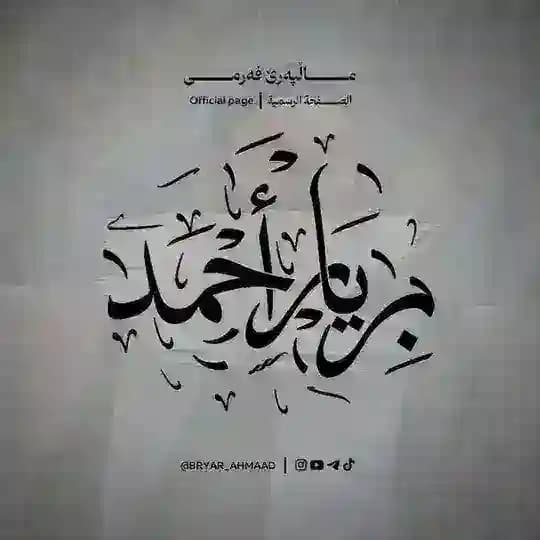 مـــاڵپەڕێ فەرمـــی
Official page | الصـفـحة الرسمية
بريار أحمد
@BRYAR_AHMAAD |